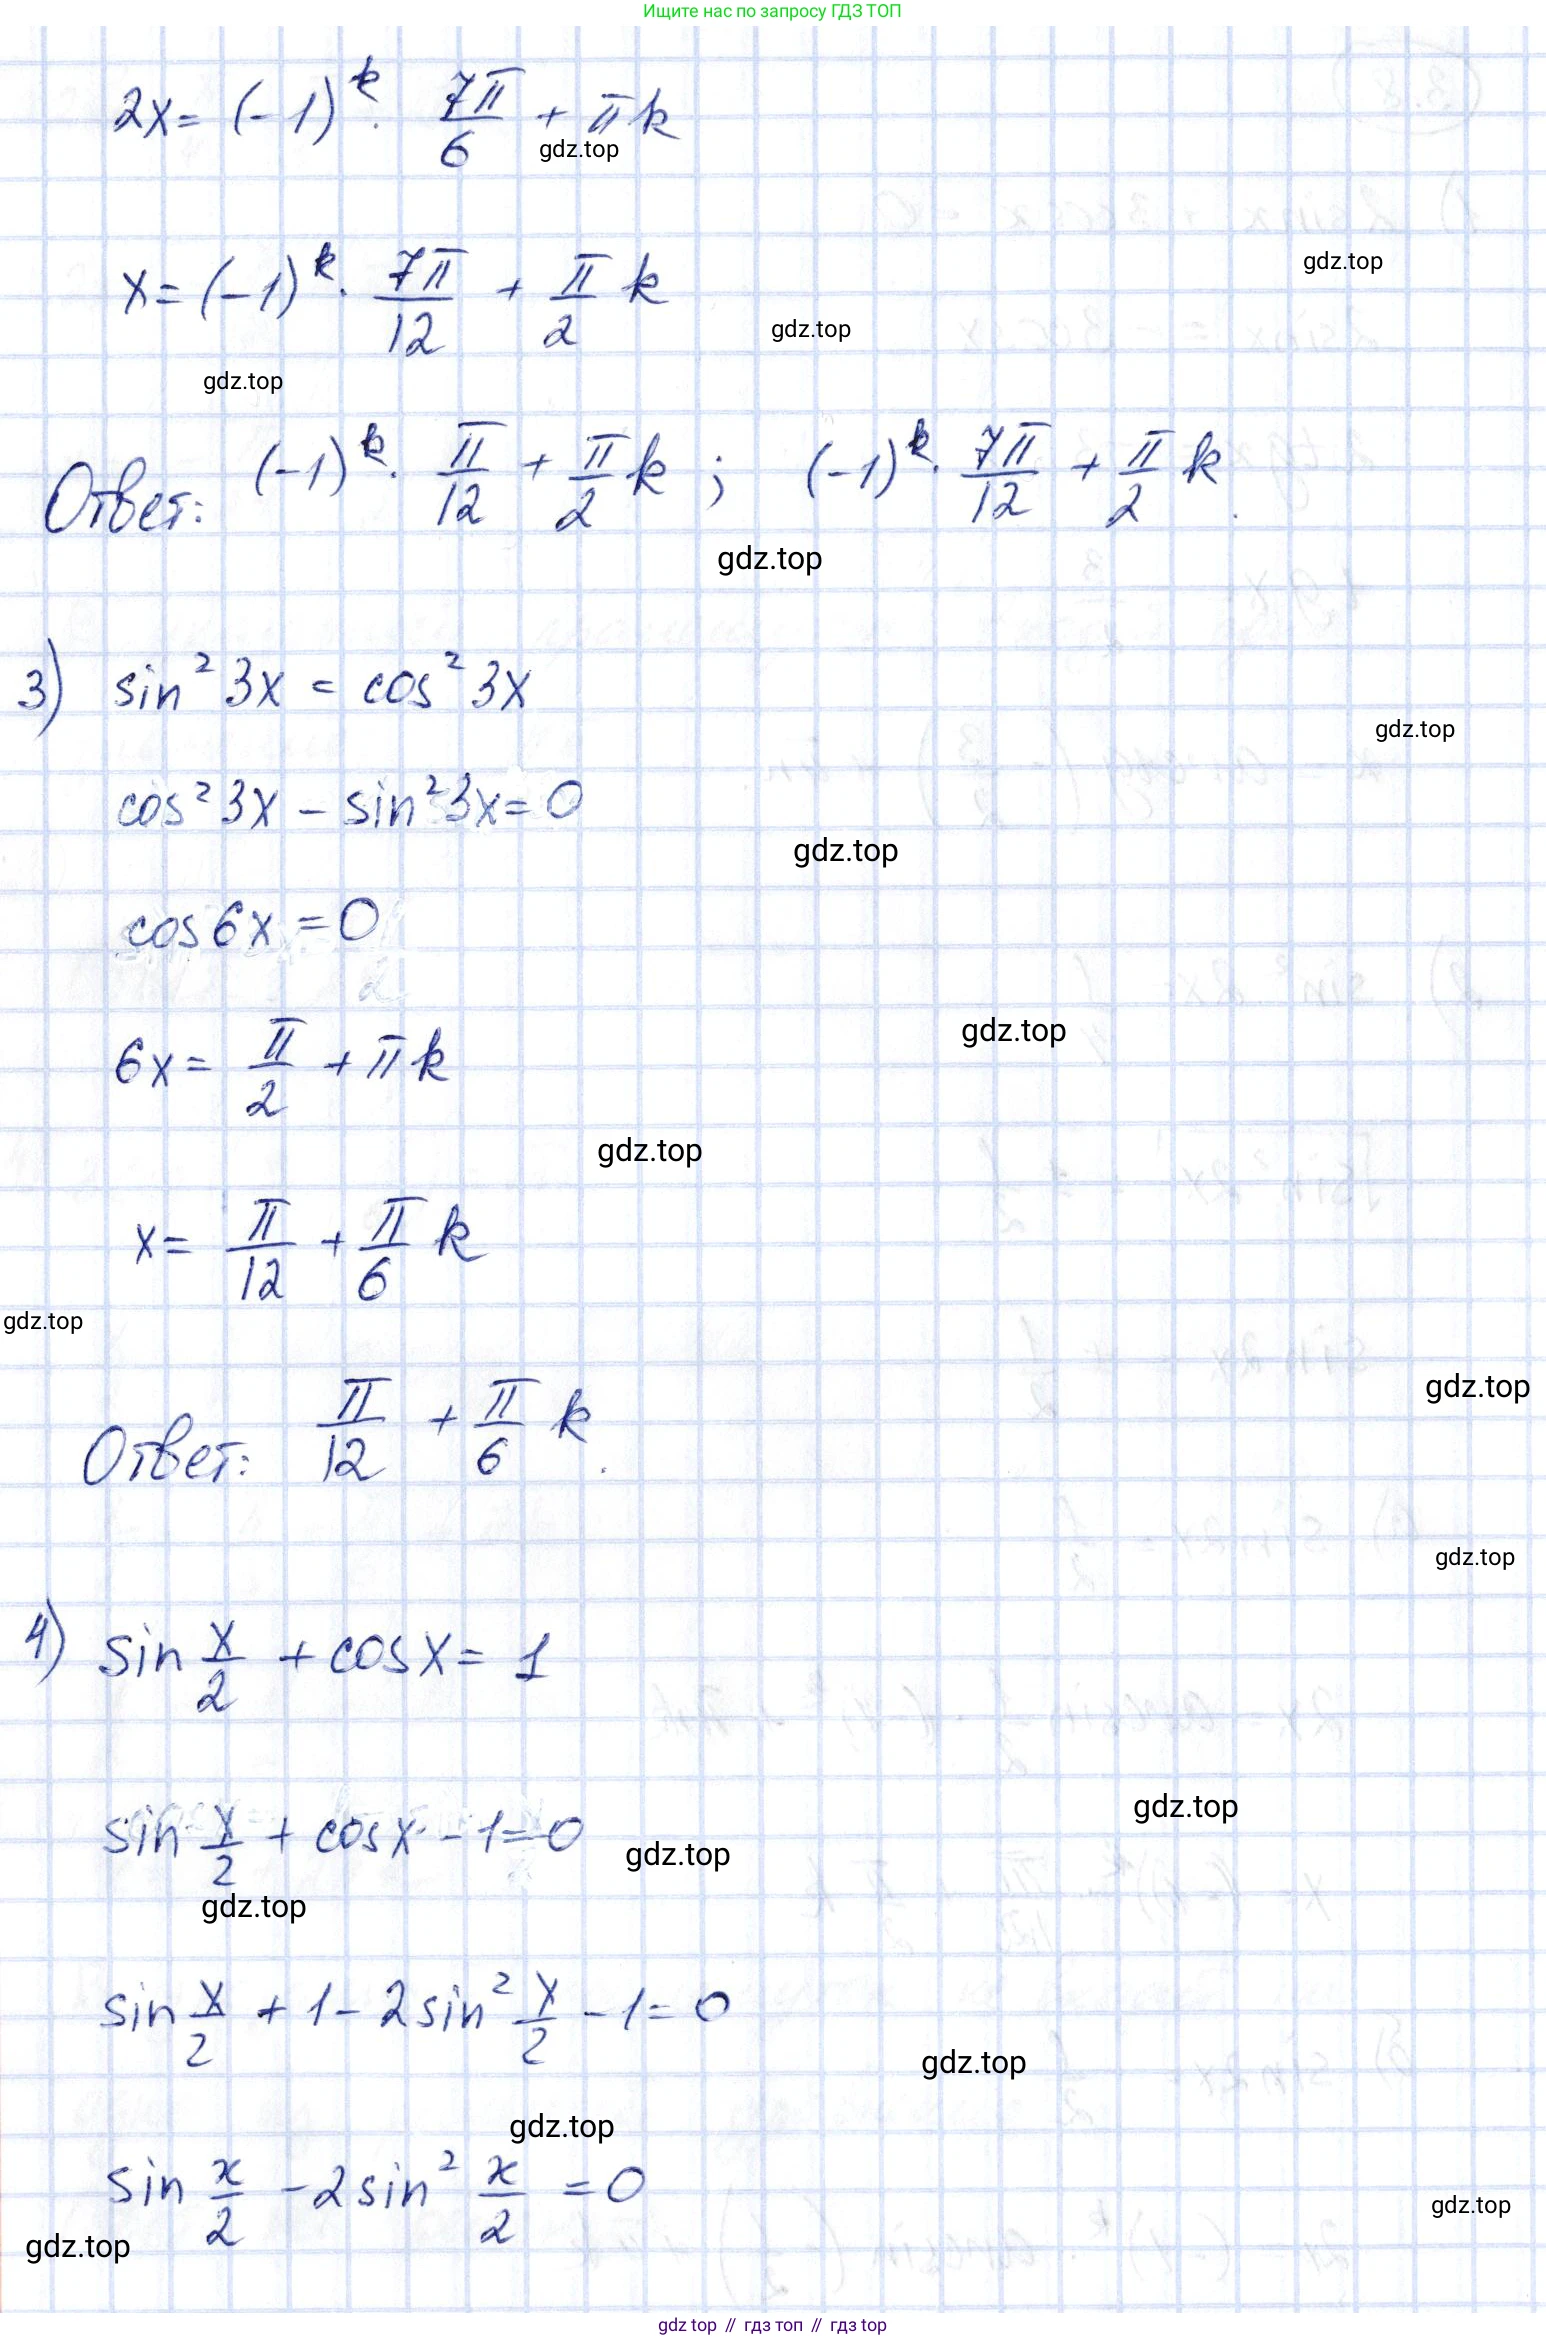 Ищите нас по запросу ГДЗ ТОП
2x = (-1)^k · 7π/6 + πk
gdz.top
x = (-1)^k · 7π/12 + π/2 k
gdz.top
gdz.top
gdz.top
Ответ: (-1)^k · π/12 + π/2 k ; (-1)^k · 7π/12 + π/2 k.
gdz.top
3) sin² 3x = cos² 3x
gdz.top
cos² 3x - sin² 3x = 0
gdz.top
cos 6x = 0
gdz.top
6x = π/2 + πk
gdz.top
x = π/12 + π/6 k
gdz.top
gdz.top
Ответ: π/12 + π/6 k.
gdz.top
4) sin x/2 + cos x = 1
gdz.top
sin x/2 + cos x - 1 = 0
gdz.top
gdz.top
sin x/2 + 1 - 2 sin² x/2 - 1 = 0
gdz.top
gdz.top
sin x/2 - 2 sin² x/2 = 0
gdz.top
gdz.top
gdz top // гдз топ // гдз top